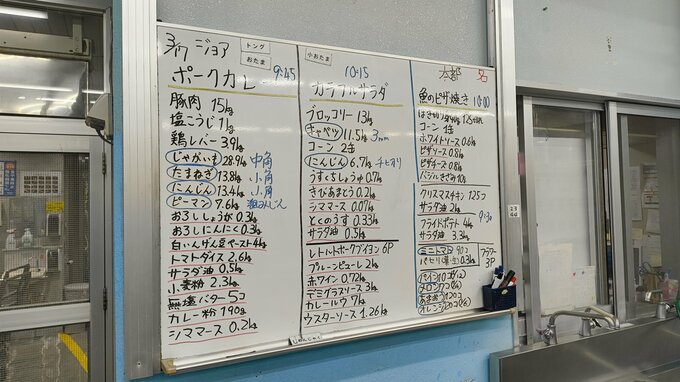 ジョア
トング
おたま
ポークカレー 9:45
豚肉 15kg
塩こうじ 1.1kg
鶏レバー 3.9kg
じゃがいも 28.9kg 中角
たまねぎ 13.8kg 小角
にんじん 13.4kg 小角
ピーマン 7.6kg 粗みじん
おろししょうが 0.3kg
おろしにんにく 0.3kg
白いんげん豆ペースト 4kg
トマトダイス 2.6kg
サラダ油 0.5kg
小麦粉 2.3kg
無塩バター 5コ
カレー粉 190g
シママース 0.2kg
小おたま
10:15
カラフルサラダ
ブロッコリー 13kg
キャベツ 11.5kg 3mm
コーン 2缶
にんじん 6.7kg チヒオリ
うすくちしょうゆ 0.7kg
きびあまとう 0.2kg
シママース 0.07kg
とくのうす 0.33kg
サラダ油 0.5kg
レトルトポークブイヨン 6P
プルーンピューレ 2kg
赤ワイン 0.72kg
デミグラスソース 3kg
カレールウ 7kg
ウスターソース 1.26kg
本部 名
魚のピザ焼き 10:00
コーン 1缶
ホワイトソース 0.6kg
ピザソース 0.8kg
ピザチーズ 0.8kg
クリスマスチキン 125コ
サラダ油 2kg
フライドポテト 4kg 9:30
サラダ油 3.3kg
ミニトマト 90コ
パセリ 0.3kg
フラワー 3P